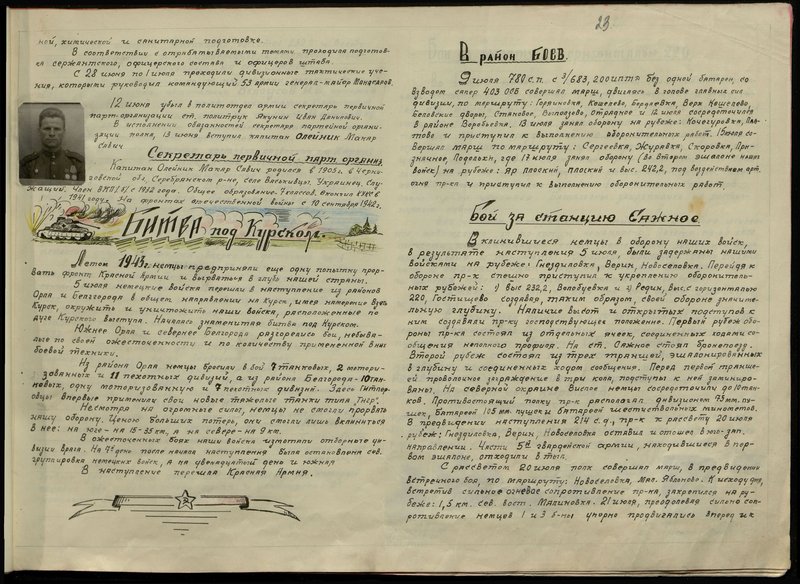 ной, химической и санитарной подготовке.
В соответствии с отрабатываемыми темами проходила подготов-
ка сержантского, офицерского состава и офицеров штаба.
С 28 июня по 1 июля проходили дивизионные тактические уче-
ния, которыми руководил командующий 53 армии генерал-майор Манагаров.
12 июня убыл в политотдел армии секретарь первичной
парт-организации ст. политрук Якунин Иван Данилович.
В исполнении обязанностей секретаря партейной органи-
зации полка, 13 июня вступил капитан Олейник Макар
Савич
Секретарь первичной парт. органи.
Капитан Олейник Макар Савич родился в 1905г. в Черни-
говской обл. Серебрянском р-не, селе Украинец, Слу-
жащий. Член ВКП/б/ с 1932 года. Общее образование 7 классов. Окончил
1941 году. На фронтах отечественной войны с 10 сентября 1942г.
Битва под Курском.
Летом 1943г. немцы предприняли еще одну попытку прор-
вать фронт Красной Армии и вырваться в глубь нашей страны.
5 июля немецкие войска перешли в наступление из районов
Орла и Белгорода в общем направлении на Курск, имея намерение взять
Курск, окружить и уничтожить наши войска, расположенные по
дуге Курского выступа. Началась знаменитая битва под Курском.
Южнее Орла и севернее Белгорода разгорелись бои, небыва-
лые по своей ожесточенности и по количеству примененной в них
боевой техники.
Из района Орла немцы бросили в бой 7 танковых, 2 мотори-
зованных и 11 пехотных дивизий, а из района Белгорода - 10 тан-
ковых, одну моторизованную и 7 пехотных дивизий. Здесь Гитлер-
овцы впервые применили свои новые тяжелые танки типа „Тигр".
Несмотря на огромные силы, немцы не смогли прорвать
нашу оборону. Ценою больших потерь, они смогли лишь вклиниться
в нее: на юге - на 15-35 км, а на севере - на 9 км.
В ожесточенных боях наши войска измотали отборные ди-
визии врага. На 7й день после начала наступления была остановлена сев.
группировка немецких войск, а на двенадцатый день и южная
В наступление перешла Красная Армия.
23
В район БОЕВ.
9 июля 780 с.п. с 3/683, 20 оиптд без одной батареи, со
взводом сапер 403 ОСБ совершал марш, двигаясь в голове главных сил
дивизии, по маршруту: Горяиновка, Кошелево, Бородаевка, Верх Кошелево,
Беловские дворы, Становое, Выползово, Отрадное и 12 июля сосредоточился
в районе Воробьевке, 13 июля занял оборону на рубеже: Кочегуровка, Пла-
това и приступил к выполнению оборонительных работ. 15 июля со-
вершал марш по маршруту: Сергеевка, Журавка, Скоровка, Приз-
начное, Подольхи, где 17 июля занял оборону (во втором эшелоне наших
войск) на рубеже: Яр плоский, плоский и выс. 242,2, под воздействием арт.
огня пр-ка и приступил к выполнению оборонительных работ.
Бой за станцию Сажное.
Вклинившиеся немцы в оборону наших войск,
в результате наступления 5 июля, были задержаны нашими
войсками на рубеже Гнездиловка, Верин, Новоселовка. Перейдя к
обороне пр-к спешно приступил к укреплению оборонитель-
ных рубежей: 1) выс 232,2, Волобуевка и 2) Редин, выс. с горизонталью
220, Гостищево создавая, таким образом, своей обороне значите-
льную глубину. Наличие высот и открытых подступов к
ним создавали пр-ку господствующие положение. Первый рубеж обо-
роны пр-ка состоял из отдельных ячеек, соединенных ходами со-
общения неполного профиля. На ст. Сажное стоял бронепоезд.
Второй рубеж состоял из трех траншей, эшалонированных
в глубину и соединенных ходом сообщения. Перед первой транше-
ей проволочное заграждение в три кола, подступы к ней заминиро-
ваны. На северной окраине Вислое немцы сосредоточили до 10 тан-
ков. Противостоящий полку пр-к располагал дивизионом 75 мм. пу-
шек, батареей 105 мм. пушек и батареей шестиствольных минометов.
В предвидении наступления 214 с.д., пр-к к рассвету 20 июля
рубеж: Гнездиловка, Верин, Новоселовка оставил и отошел в юго-зап.
направлении. Части 5й гвардейской армии, находившиеся в пер-
вом эшалоне, отходили в тыл.
С рассветом 20 июля полк совершал марш, в предвидении
встречного боя, по маршруту: Новоселовка, Мал. Яблоново. К исходу дня,
встретив сильное огневое сопротивление пр-ка, закрепился на ру-
беже: 1,5 км. сев. вост. Малиновка. 21 июля, преодолевая сильное соп-
ротивление немцев 1 и 3 б-ны упорно продвигались вперед и к